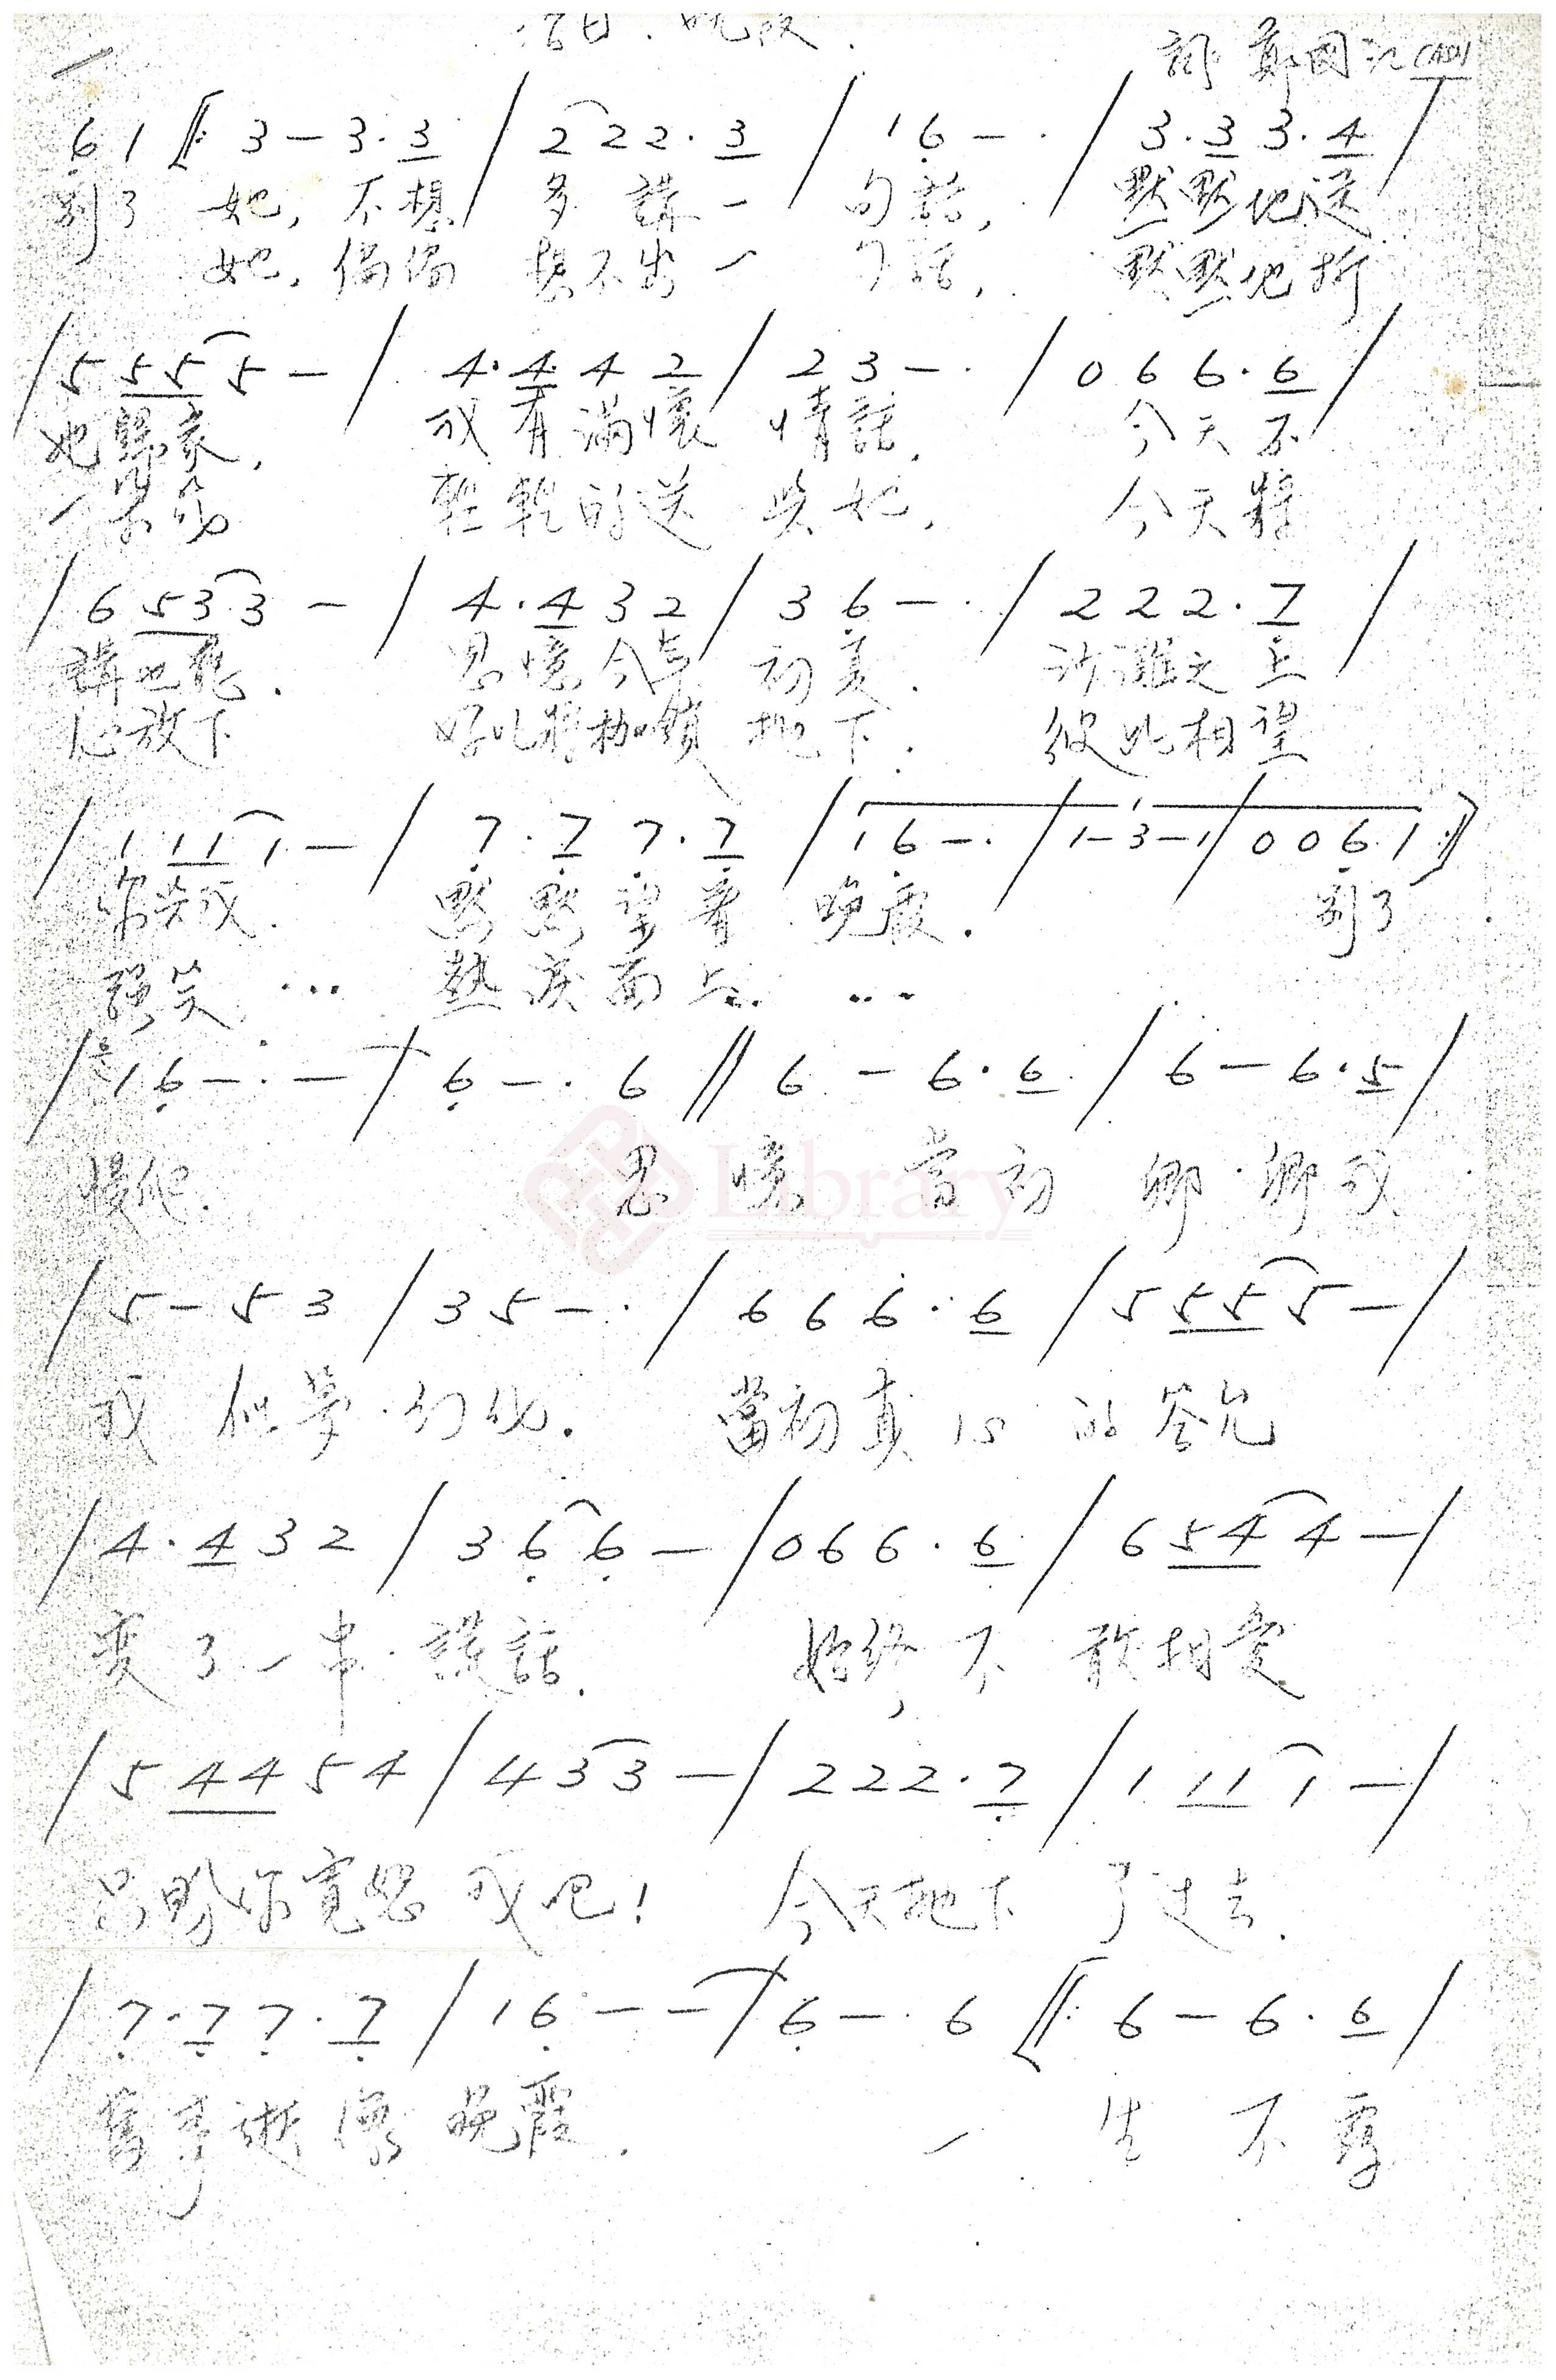 落日．晚霞．
詞：鄭國江 CASH
6̣ 1 ‖: 3 – 3 · 3 / 2 2 2 · 3 / 1 6̣ – · / 3 · 3 3 · 4 /
別了 她, 不想 多 講一 句話, 默默地送
她, 偏偏 想不出一 句話, 默默地折
/ 5 5 5 5 – / 4 · 4 4 2 / 2 3 – · / 0 6 6 · 6 /
她歸家, 我有滿懷 情話, 今天不
一朵花 輕輕的送 與她, 今天將
/ 6 5 3 3 – / 4 · 4 3 2 / 3 6̣ – · / 2 2 2 · 7̣ /
講也罷. 思憶今早 初夏. 沙灘之上
心放下 好比將枷鎖 拋下. 彼此相望
/ 1 1 1 1 – / 7̣ · 7̣ 7̣ · 7̣ / 1 6̣ – · / 1 – 3 – 1 / 0 0 6̣ 1 :‖
你共我. 默默望著 晚霞. 別了
強笑, … 熱淚面上 …
/ 1 6̣ – · – / 6̣ – · 6 // 6 – 6 · 6 / 6 – 6 · 5 /
慢爬. 思憶當初 卿卿我
/ 5 – 5 3 / 3 5 – · / 6 6 6 · 6 / 5 5 5 5 – /
我 似夢幻化. 當初真心 的答允
/ 4 · 4 3 2 / 3 6̣ 6̣ – / 0 6 6 · 6 / 6 5 4 4 – /
變了一串謊話. 始終不 敢相愛
/ 5 4 4 5 4 / 4 3 3 – / 2 2 2 · 7̣ / 1 1 1 1 – /
只盼你寬恕 我吧! 今天拋下 了過去.
/ 7̣ · 7̣ 7̣ · 7̣ / 1 6̣ – – / 6̣ – · 6 ‖: 6 – 6 · 6 /
舊事逝像晚霞. 一 生 不覆
Library